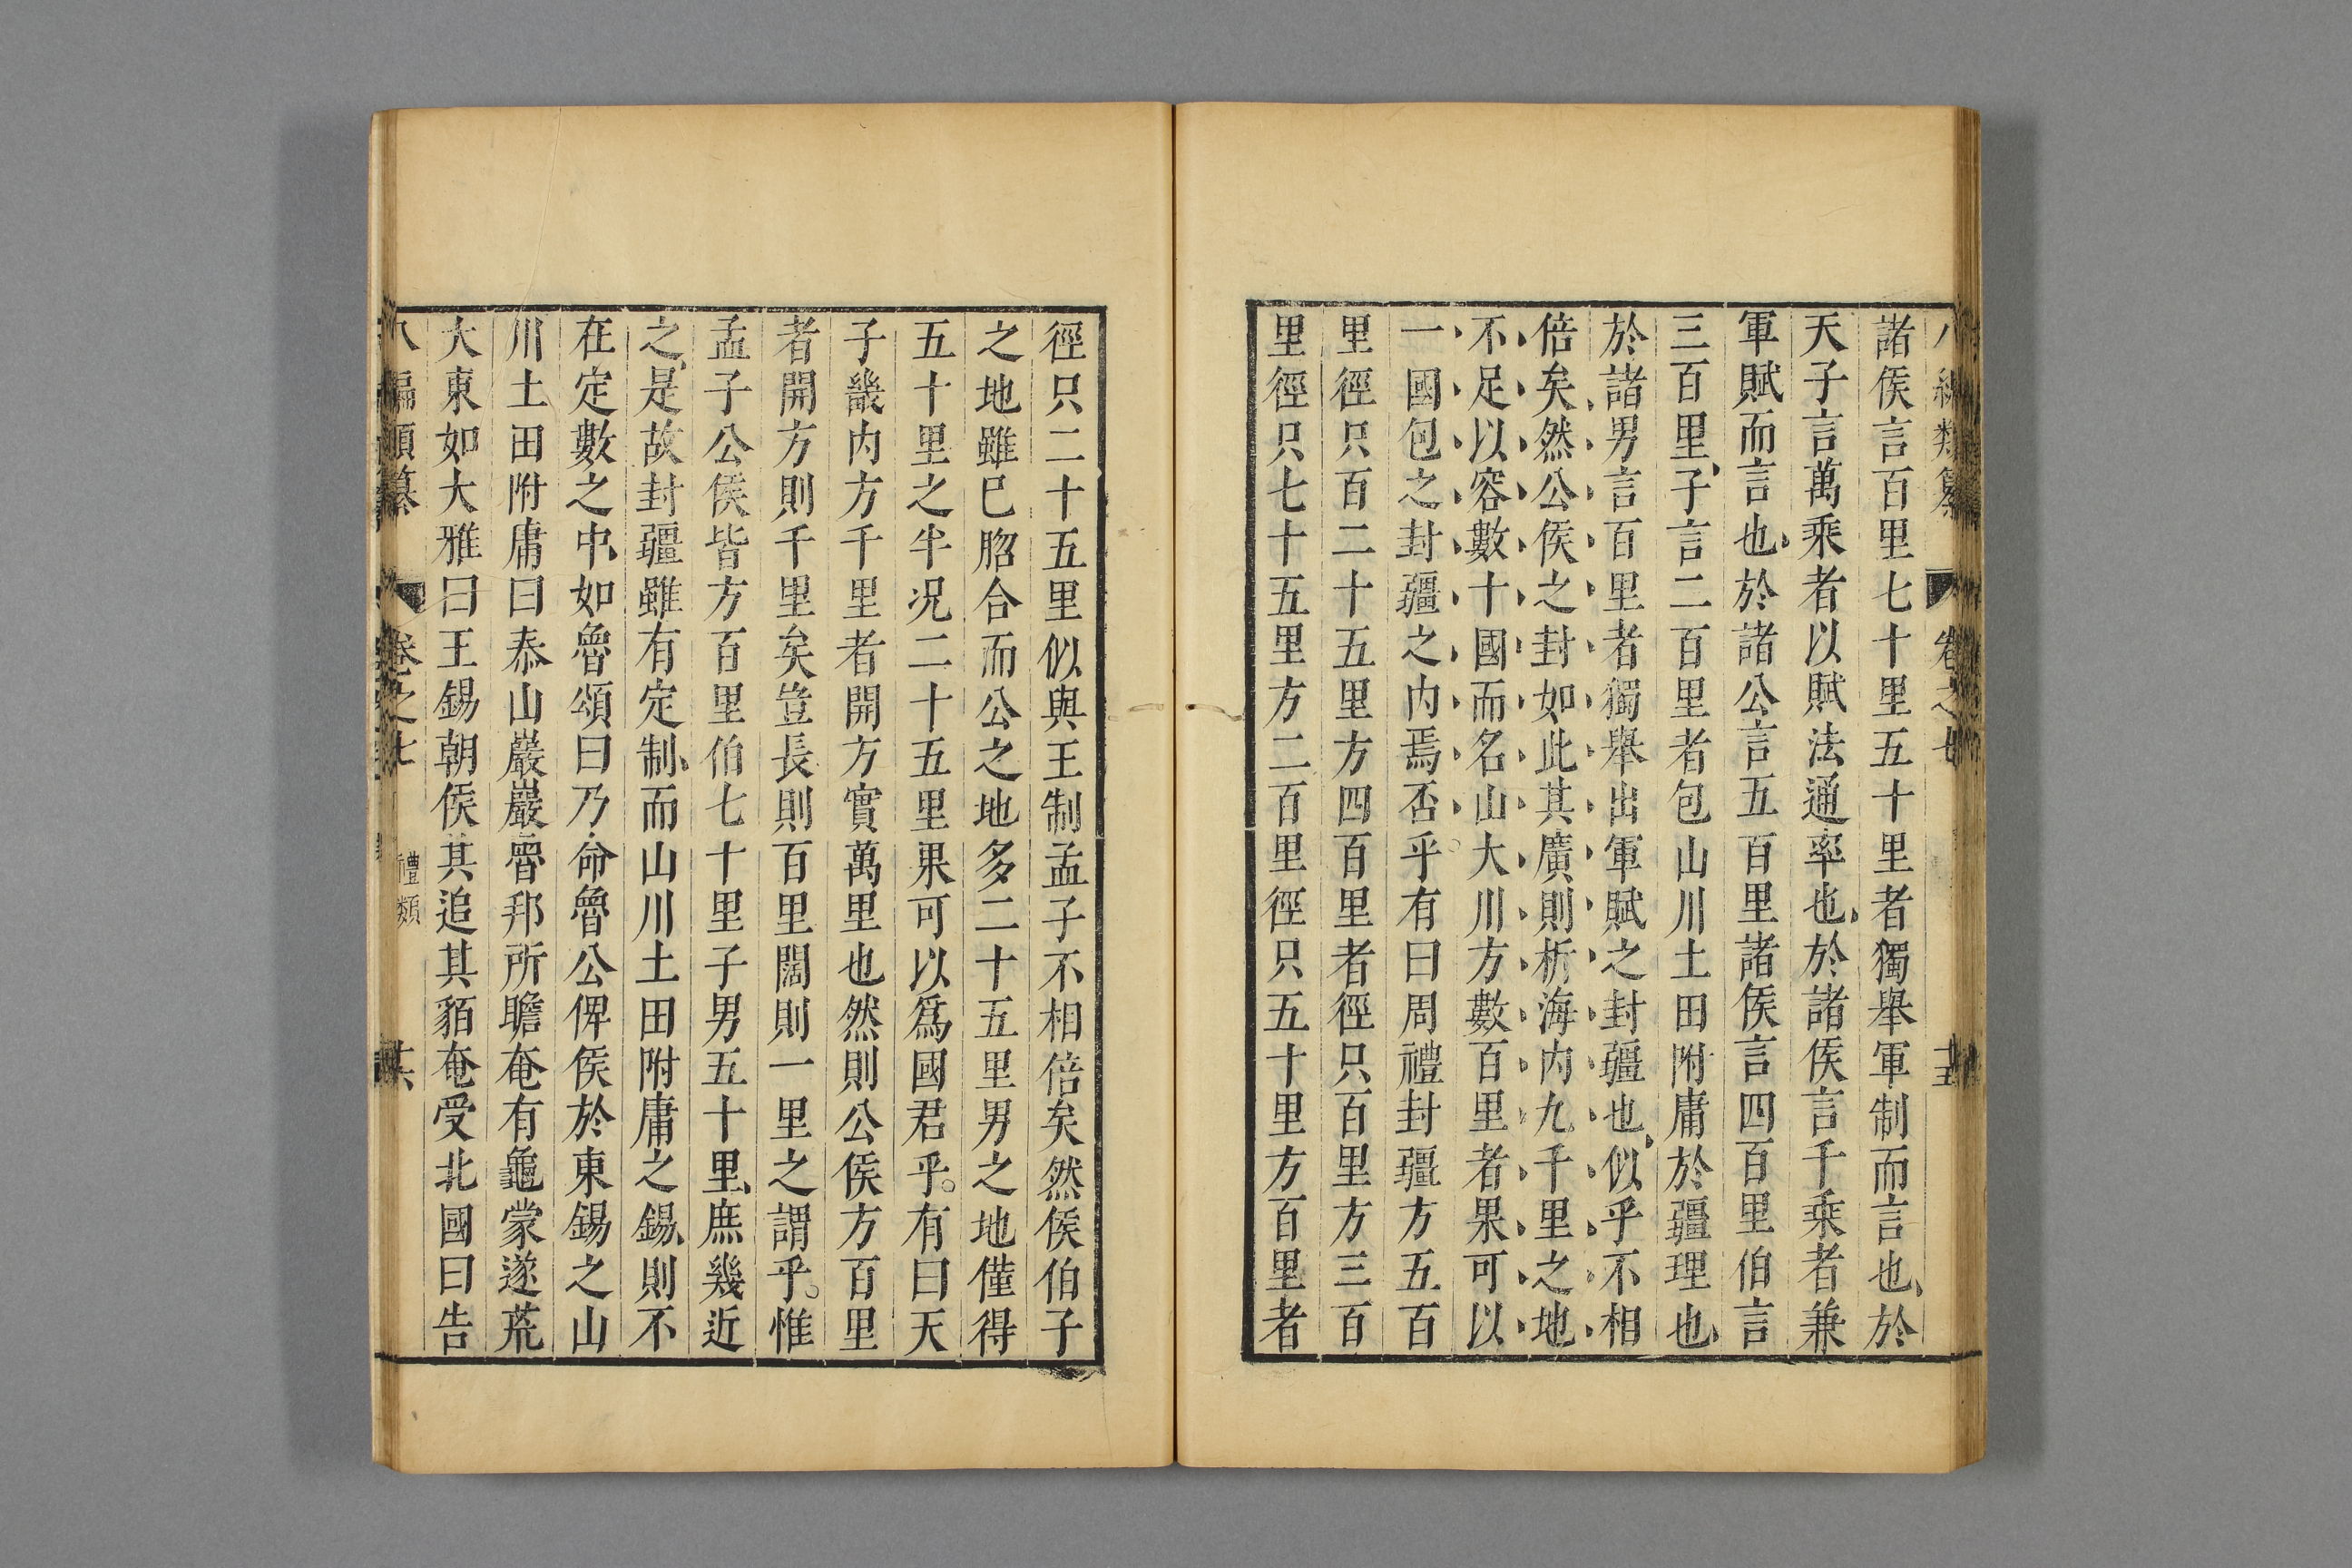 諸侯言百里七十里五十里者獨舉軍制而言也、於
天子言萬乘者以賦法通率也、於諸侯言千乘者兼
軍賦而言也、於諸公言五百里諸侯言四百里伯言
三百里、子言二百里者包山川土田附庸於疆理也、
於諸男言百里者獨舉出軍賦之封疆也、似乎不相
倍矣然公侯之封如此其廣則析海内九千里之地
不足以容數十國而名山大川方數百里者果可以
一國包之封疆之内焉否乎。有曰周禮封疆方五百
里徑只百二十五里方四百里者徑只百里方三百
里徑只七十五里方二百里徑只五十里方百里者
徑只二十五里似與王制孟子不相倍矣然侯伯子
之地雖已脗合而公之地多二十五里男之地僅得
五十里之半况二十五里果可以爲國君乎。有曰天
子畿内方千里者開方實萬里也然則公侯方百里
者開方則千里矣豈長則百里闊則一里之謂乎。惟
孟子公侯皆方百里伯七十里子男五十里、庶幾近
之、是故封疆雖有定制、而山川土田附庸之錫、則不
在定數之中、如魯頌曰乃命魯公俾侯於東錫之山
川土田附庸曰泰山巖巖魯邦所瞻奄有龜蒙遂荒
大東如大雅曰王錫朝侯其追其貊奄受北國曰告
八編類纂 卷之七 禮類